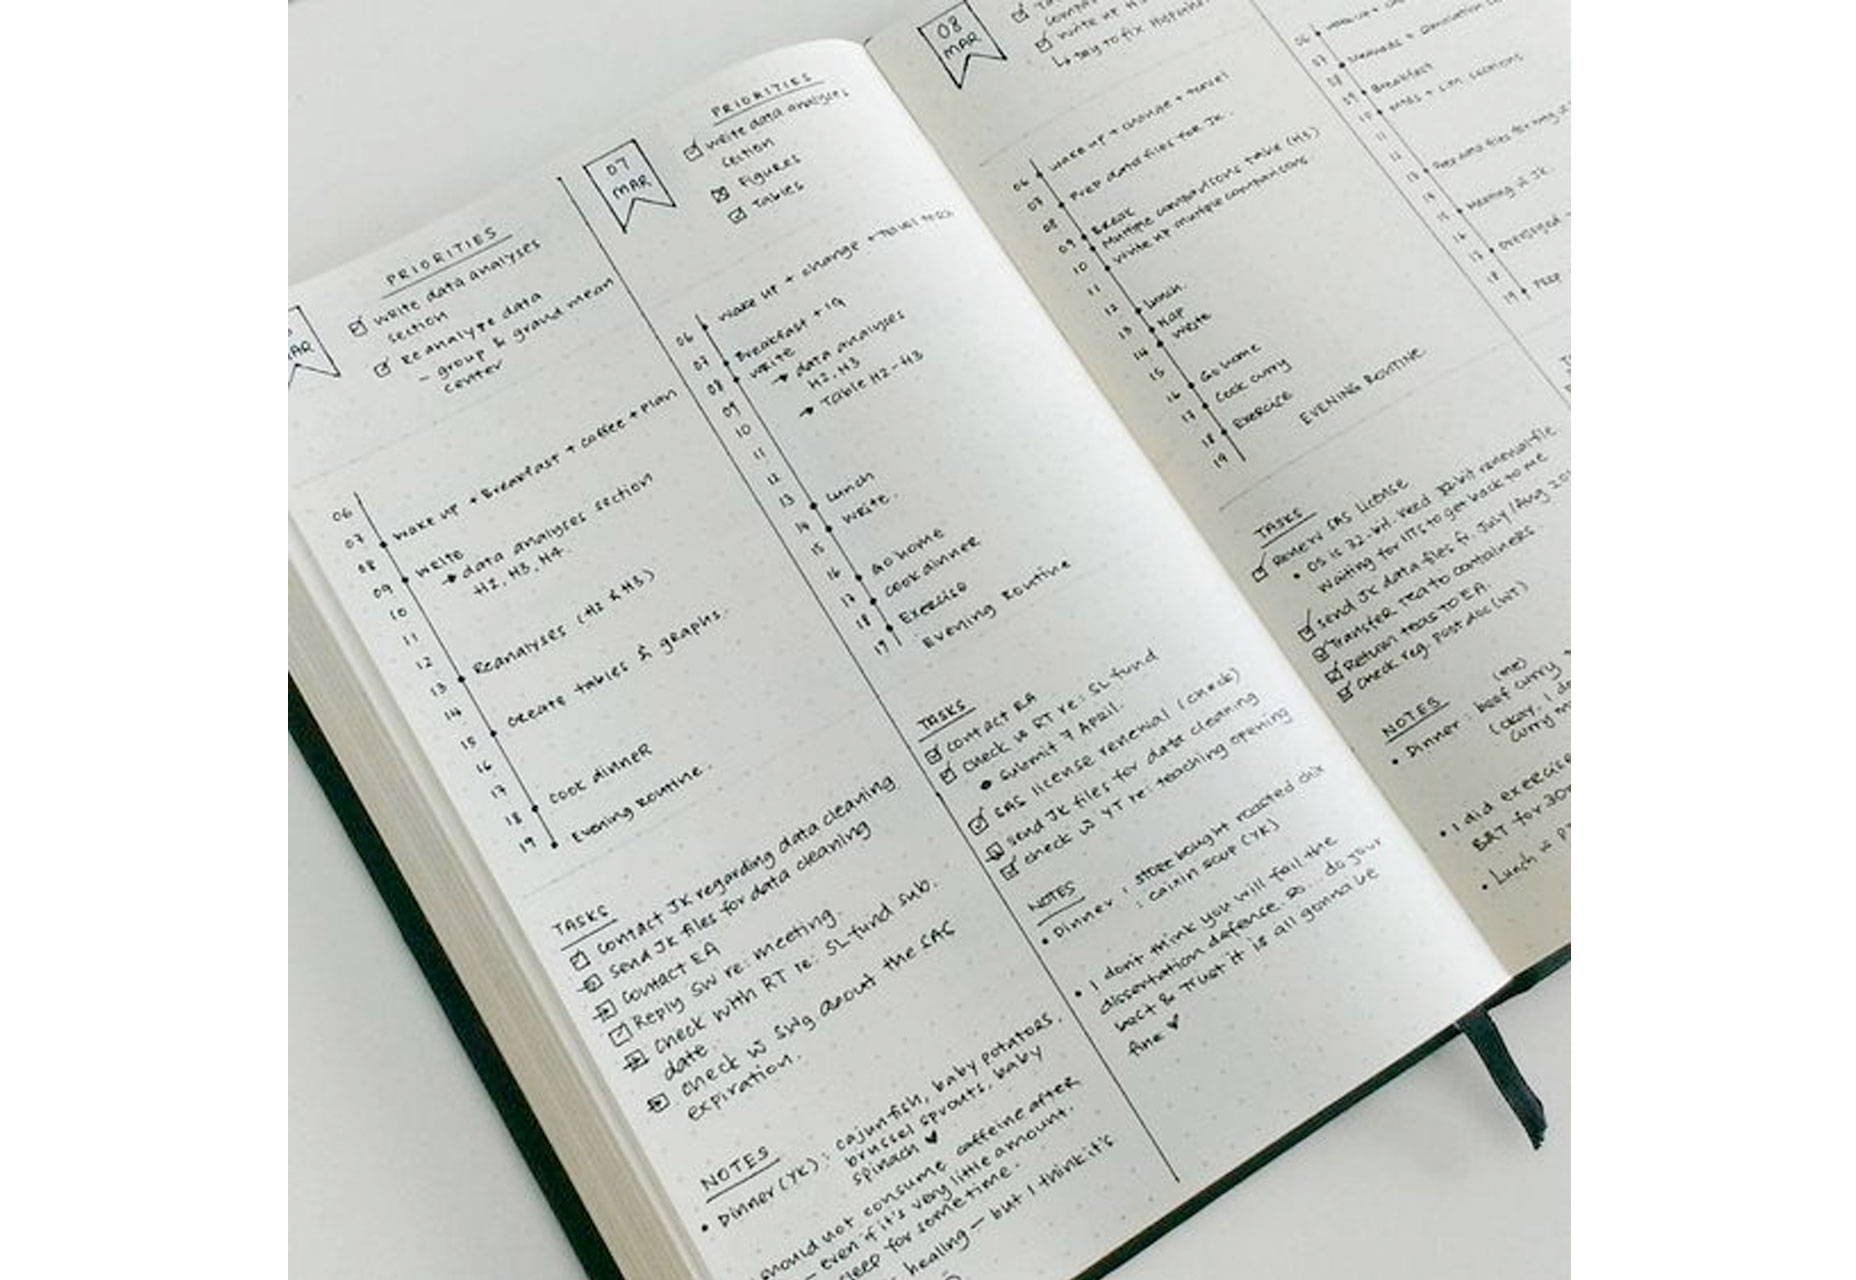 MAR
PRIORITIES
write data analyses
section
Reanalyze data
- group & grand mean
center
06
07
08
09
10
11
12
13
14
15
16
17
18
19
wake up + Breakfast + coffee + Plan
write
→ data analyses section
H2, H3, H4.
Reanalyses (H2 & H3)
create tables & graphs.
cook dinner
Evening Routine.
TASKS
contact JK regarding data cleaning
send JK files for data cleaning
contact EA
Reply SW re: meeting.
check with RT re: SL fund sub.
date.
check w SWg about the SAS
expiration.
NOTES
• Dinner (YK): cajun fish, baby potatoes,
brussel sprouts, baby
spinach ♥
should not consume caffeine after
— even if it's very little amount.
sleep for sometime.
healing — but I think it's
07
MAR
PRIORITIES
write data analyses
section
Figures
Tables
06
07
08
09
10
11
12
13
14
15
16
17
18
19
wake up + change + travel
Breakfast +
write
→ data analyses
H2, H3
→ Table H2-H3
Lunch
write.
Go home
cook dinner
Exercise
Evening Routine
TASKS
contact EA
check w RT re: SL fund
• submit 7 April.
SAS license renewal (check)
send JK files for data cleaning
check w YT re: teaching opening
NOTES
• Dinner : store bought roasted chix
: caixin soup (YK)
• I don't think you will fail the
dissertation defense. so.. do your
best & Trust it is all gonna be
fine ♥
08
MAR
write up
↳ try to fix
06
07
08
09
10
11
12
13
14
15
16
17
18
19
wake up + change + travel
Prep data files for JK.
Break
Multiple comparisons table (H3)
write up multiple comparisons
Lunch.
Nap
write
Go home
Cook curry
Exercise
EVENING ROUTINE
TASKS
Renew SAS License
• OS is 32-bit. Need 32-bit renewal file
waiting for ITS to get back to me
send JK data files fr. July/Aug
Transfer tea to containers
Return teas to EA.
check reg. post doc (WT)
NOTES
(me)
• Dinner : beef curry
(okay, I
curry
• I did exercise
for 30
• Lunch w
06
07
08
09
10
11
12
13
14
15
16
17
18
19
Breakfast
sections
Meeting w JK.
Prep